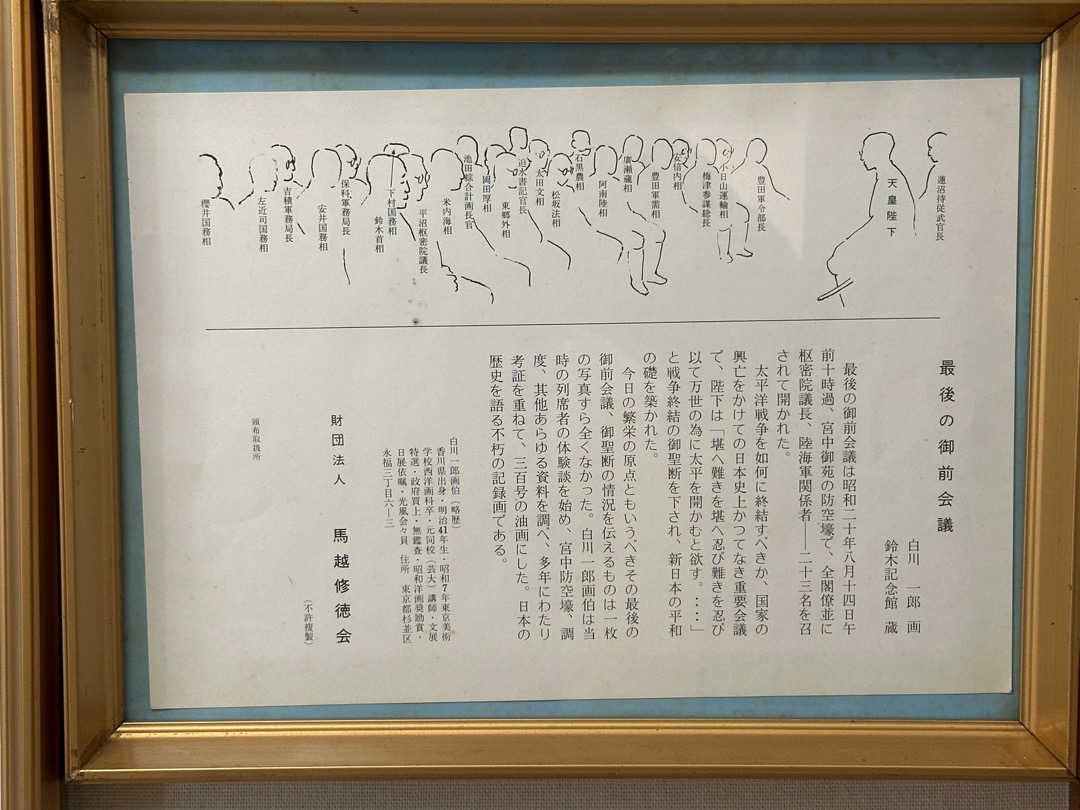 蓮沼侍従武官長
天皇陛下
豊田軍令部長
小日山運輸相
梅津参謀総長
安倍内相
豊田軍需相
廣瀬蔵相
阿南陸相
石黒農相
松坂法相
太田文相
迫水書記官長
東郷外相
岡田厚相
池田綜合計画長官
米内海相
平沼枢密院議長
下村国務相
鈴木首相
保科軍務局長
安井国務相
吉積軍務局長
左近司国務相
櫻井国務相
最後の御前会議
白川 一郎 画
鈴木記念館 蔵
最後の御前会議は昭和二十年八月十四日午
前十時過、宮中御苑の防空壕で、全閣僚並に
枢密院議長、陸海軍関係者――二十三名を召
されて開かれた。
太平洋戦争を如何に終結すべきか、国家の
興亡をかけての日本史上かつてなき重要会議
で、陛下は「堪へ難きを堪へ忍び難きを忍び
以て万世の為に太平を開かむと欲す。・・・」
と戦争終結の御聖断を下され、新日本の平和
の礎を築かれた。
今日の繁栄の原点ともいうべきその最後の
御前会議、御聖断の情況を伝えるものは一枚
の写真すら全くなかった。白川一郎画伯は当
時の列席者の体験談を始め、宮中防空壕、調
度、其他あらゆる資料を調べ、多年にわたり
考証を重ねて、三百号の油画にした。日本の
歴史を語る不朽の記録画である。
白川一郎画伯(略歴)
香川県出身・明治41年生・昭和7年東京美術
学校西洋画科卒・元同校(芸大)講師・文展
特選・政府買上・無鑑査・昭和洋画奨励賞・
日展依嘱・光風会々員 住所 東京都杉並区
永福三丁目六―三
財団法人 馬越修徳会
(不許複製)
頒布取扱所